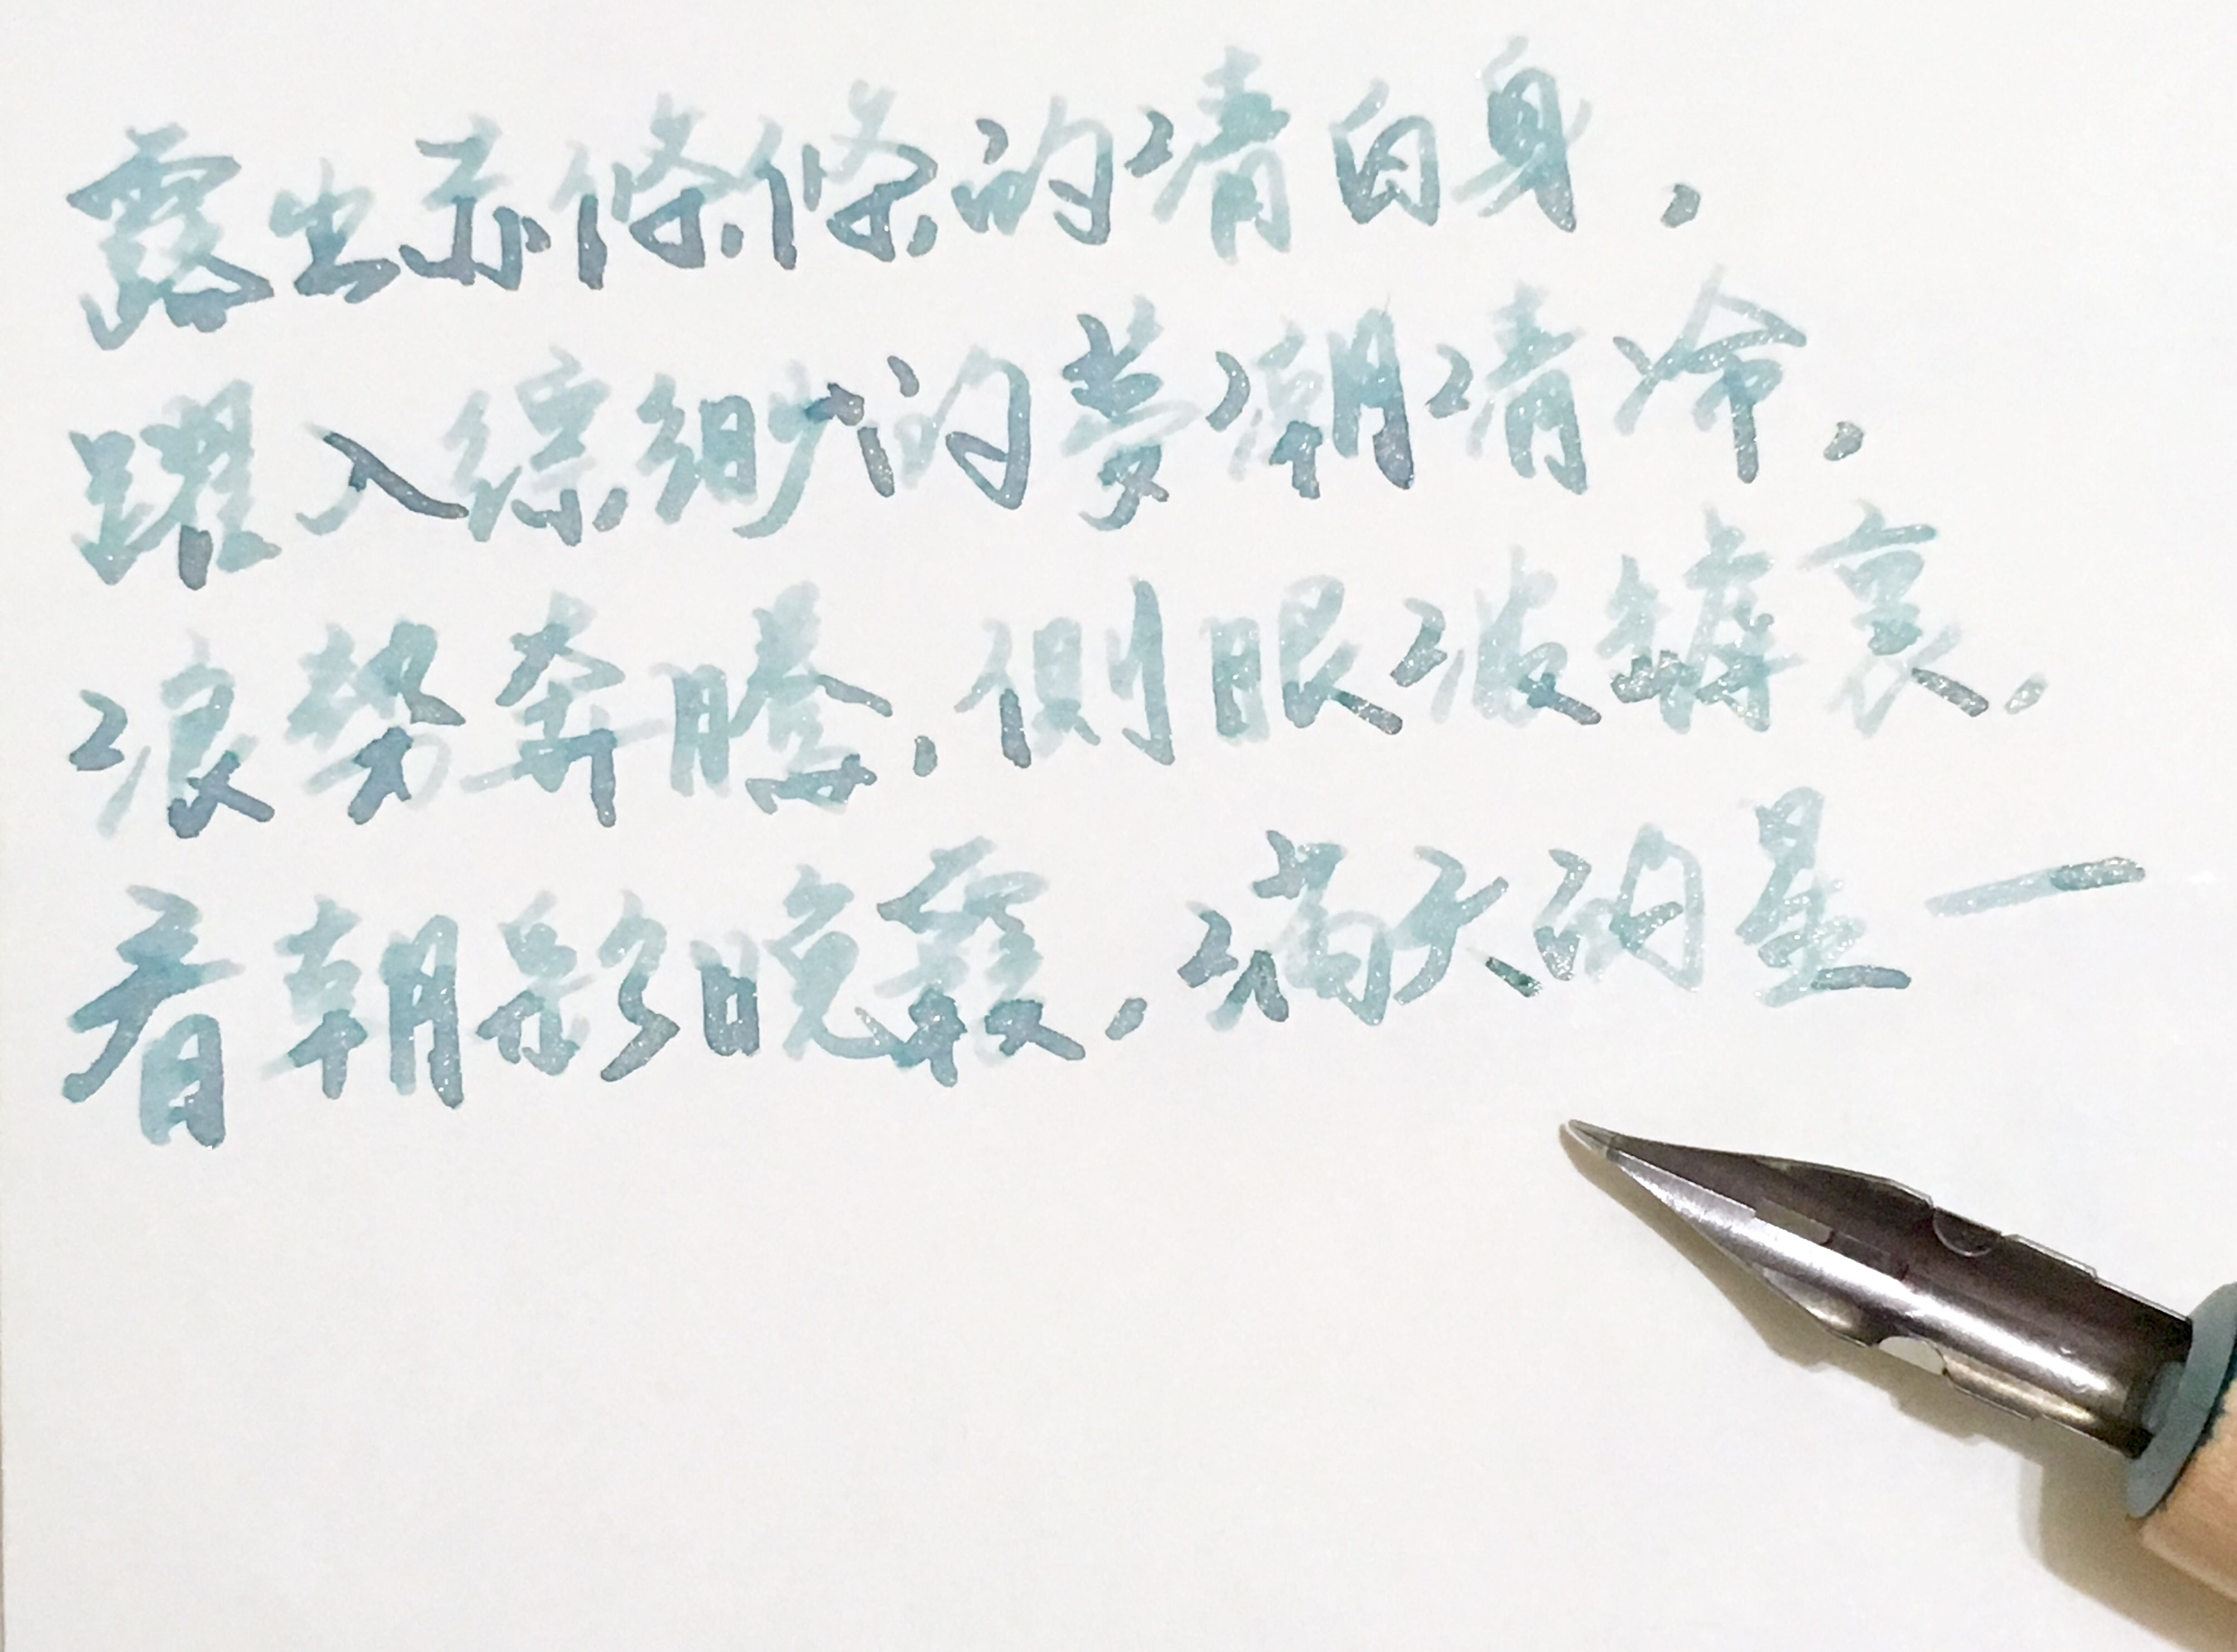 露出赤條條的清白身,
躍入縹緲的夢潮清冷,
浪勢奔騰,側眼波罅裏,
看朝彩晚霞,滿天的星—